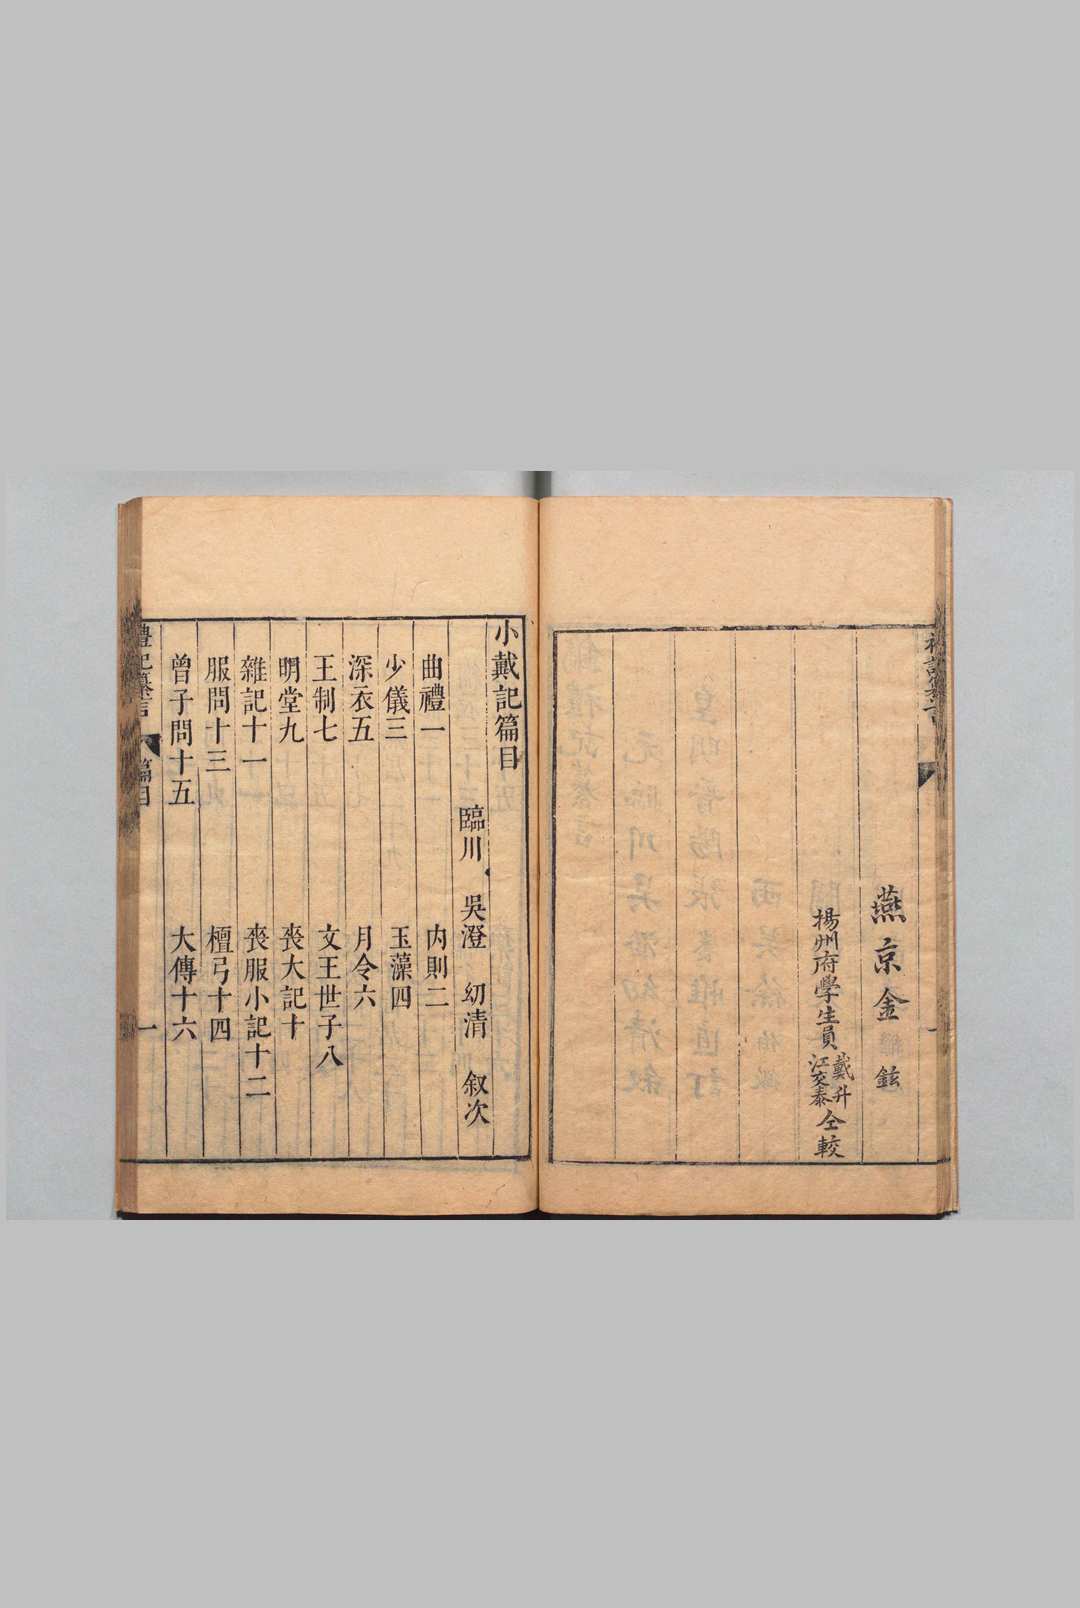 燕京金鉉
揚州府學生員戴升江交泰仝較
小戴記篇目
臨川 吳澄 幼清 叙次
曲禮一 內則二
少儀三 玉藻四
深衣五 月令六
王制七 文王世子八
明堂九 喪大記十
雜記十一 喪服小記十二
服問十三 檀弓十四
曾子問十五 大傳十六
禮記纂言 篇目 一